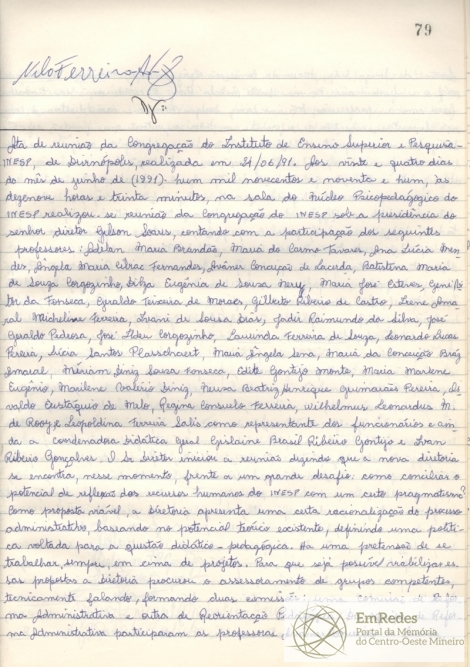 79
Nilo Ferreira
Ata de reunião da Congregação do Instituto de Ensino Superior e Pesquisa-
INESP, de Divinópolis, realizada em 24/06/91. Aos vinte e quatro dias
do mês de junho de (1991) hum mil novecentos e noventa e hum, às
dezenove horas e trinta minutos, na sala do Núcleo Psicopedagógico do
INESP realizou-se reunião da Congregação do INESP sob a presidência do
senhor diretor Gylson Soares, contando com a participação dos seguintes
professores: Adilan Maria Brandão, Maria do Carmo Tavares, Ana Lúcia Men-
des, Ângela Maria Fernandes, Conceição de Lacerda, Batistina Maria
de Souza Corgozinho, Dilza Eugênia de Sousa Nery, Maria José Esteves,
da Fonseca, Geraldo Teixeira de Moraes, Gilberto Ribeiro de Castro, Irene Ama-
ral Michelini Ferreira, Ivani de Sousa Dias, Jadir Raimundo da Silva, José
Geraldo Pedrosa, José Ildeu Corgozinho, Laurinda Ferreira de Souza, Leonardo Lucas
Pereira, Lúcia Santos Plasschaert, Maria Ângela Sena, Maria da Conceição Braz
Amaral, Miriam Diniz Sousa Fonseca, Edite Gontijo Monte, Maria Marlene
Eugênio, Marilene Valério Diniz, Neusa Beatriz Henrique Guimarães Pereira, Os-
valdo Eustáquio de Melo, Regina Consuelo Ferreira, Wilhelmus Leonardus M.
de Rooy e Leopoldina Ferreira Salis como representante dos funcionários e ain-
da a coordenadora Didática Geral Gislaine Brasil Ribeiro Gontijo e Ivan
Ribeiro Gonçalves. O Sr. Diretor iniciou a reunião dizendo que a nova diretoria
se encontra, nesse momento, frente a um grande desafio: como conciliar o
potencial de reflexão dos recursos humanos do INESP com um certo pragmatismo?
Como proposta viável, a diretoria apresenta uma certa racionalização do processo
administrativo, baseando no potencial teórico existente, definindo uma políti-
ca voltada para a questão didático-pedagógica. Ha uma pretensão de se
trabalhar sempre em cima de projetos. Para que seja possível viabilizar es-
sas propostas a diretoria procurou o assessoramento de grupos competentes,
tecnicamente falando, formando duas comissões: uma comissão de Refor-
ma Administrativa e outra de Reorientação
ma Administrativa participaram as professoras,
EmRedes
Portal da Memória
do Centro-Oeste Mineiro